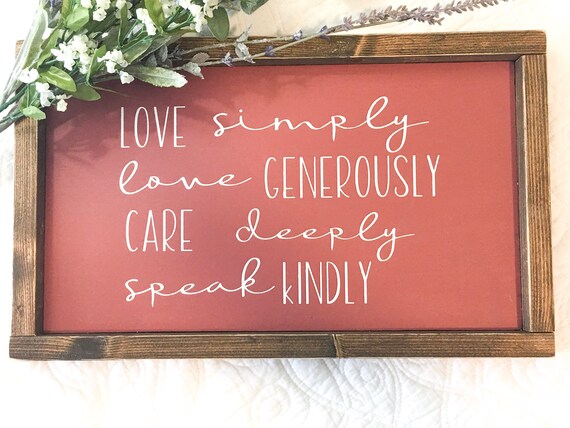 LOVE simply
love GENEROUSLY
CARE deeply
speak kINDLY